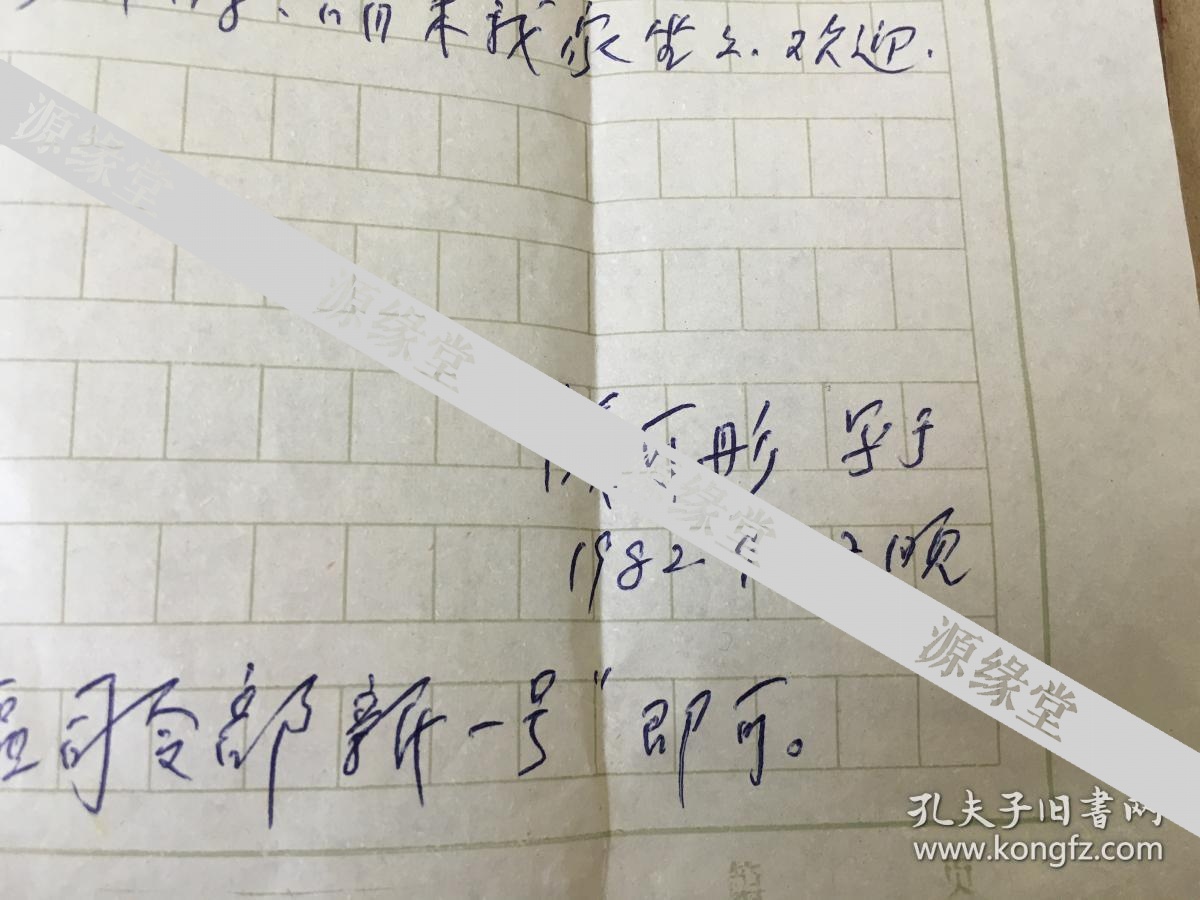 请来我家坐坐.欢迎.
源缘堂
源缘堂
彤 字于
源缘堂
1982 晚
源缘堂
区司令部新一号"即可。
孔夫子旧书网
www.kongfz.com
第 页